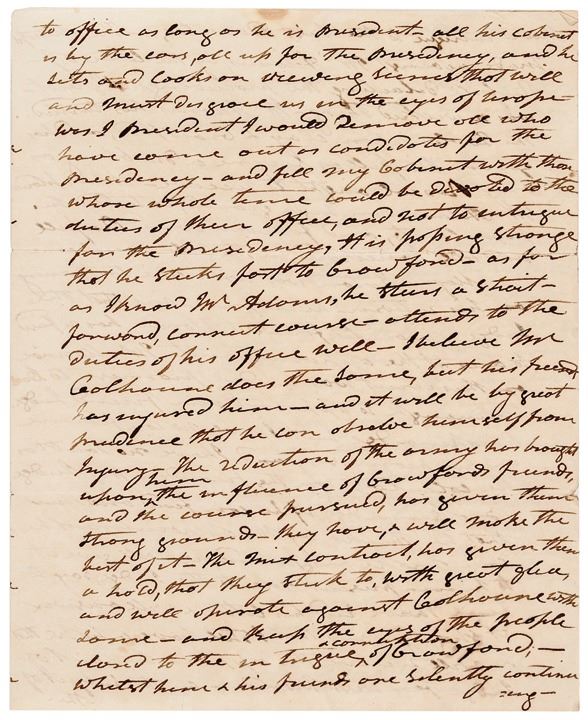 to office as long as he is President – all his cabinet
is by the ears, all up for the Presidency, and he
sets and looks on viewing scenes that will
and must disgrace us in the eyes of urope –
was I President I would remove all who
have come out as candidates for the
Presidency – and fill my Cabinet with those
whose whole time could be devoted to the
duties of their office, and not to intrigue
for the Presidency, It is passing strange
that he sticks fast to Crawford – as far
as I know Mr Adams, he stears a strait-
forward, correct course – attends to the
duties of his office well – I believe Mr
Colhoune does the same, but his friends
has injured him – and it will be by great
prudence that he can absolve himself from
Injury – The reduction of the army has brought
upon him, the influence of Crawfords friends,
and the course pursued, has given them
strong grounds – they have, & will make the
best of it – The Mix contract, has given them
a hold, that they stick to, with great glee
and will operate against Colhoune with
some – and keep the eyes of the people
closed to the intrigue & corruption of Crawford, –
whilst him & his friends are silently continu
=ing –